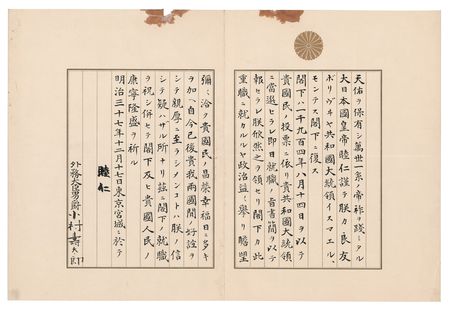 天佑ヲ保有シ萬世一系ノ帝祚ヲ踐ミタル
大日本國皇帝睦仁謹テ朕カ良友
ボリヴィヤ共和國大統領イスマエル、
モンテス閣下ニ復ス
閣下ハ一千九百四年八月十四日ヲ以テ
貴國民ノ投票ニ依リ貴共和國大統領
ニ當選セラレ即日就職ノ旨書簡ヲ以テ
報セラレ朕欣然之ヲ領セリ閣下カ此
重職ニ就カルヽヤ政治益々擧リ瞻望
彌々洽ク貴國民ノ昌榮幸福日ニ多キ
ヲ加ヘ自今已後貴我兩國間ノ好誼ヲ
シテ親厚ニ至ラシメンコトハ朕ノ信
シテ疑ハサル所ナリ茲ニ閣下ノ就職
ヲ祝シ併セテ閣下及ヒ貴國人民ノ
康寧隆盛ヲ祈ル
明治三十七年十二月十七日東京宮城ニ於テ
睦仁
外務大臣男爵小村壽太郎